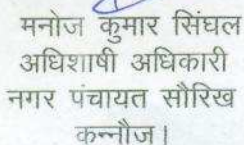 मनोज कुमार सिंघल
अधिशाषी अधिकारी
नगर पंचायत सौरिख
कन्नौज।